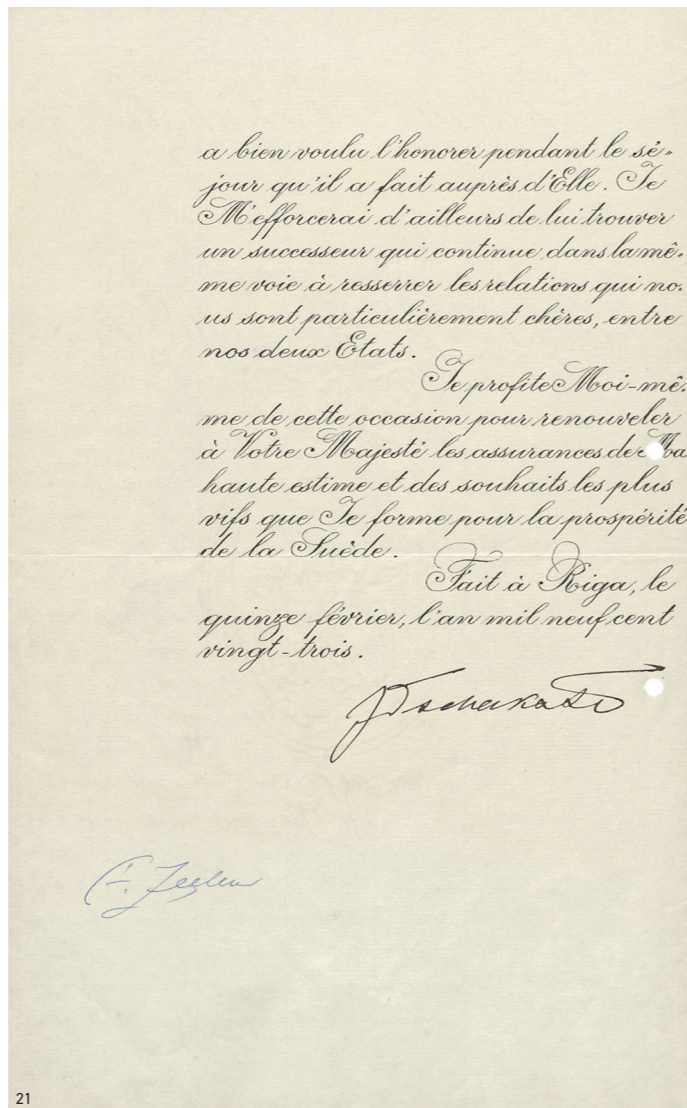 a bien voulu l'honorer pendant le sé-
jour qu'il a fait auprès d'Elle. Je
M'efforcerai d'ailleurs de lui trouver
un successeur qui continue, dans la mê-
me voie à resserrer les relations qui no-
us sont particulièrement chères, entre
nos deux Etats.
Je profite Moi-mê-
me de cette occasion pour renouveler
à Votre Majesté les assurances de Ma
haute estime et des souhaits les plus
vifs que Je forme pour la prospérité
de la Suède.
Fait à Riga, le
quinze février, l'an mil neuf cent
vingt-trois.
21